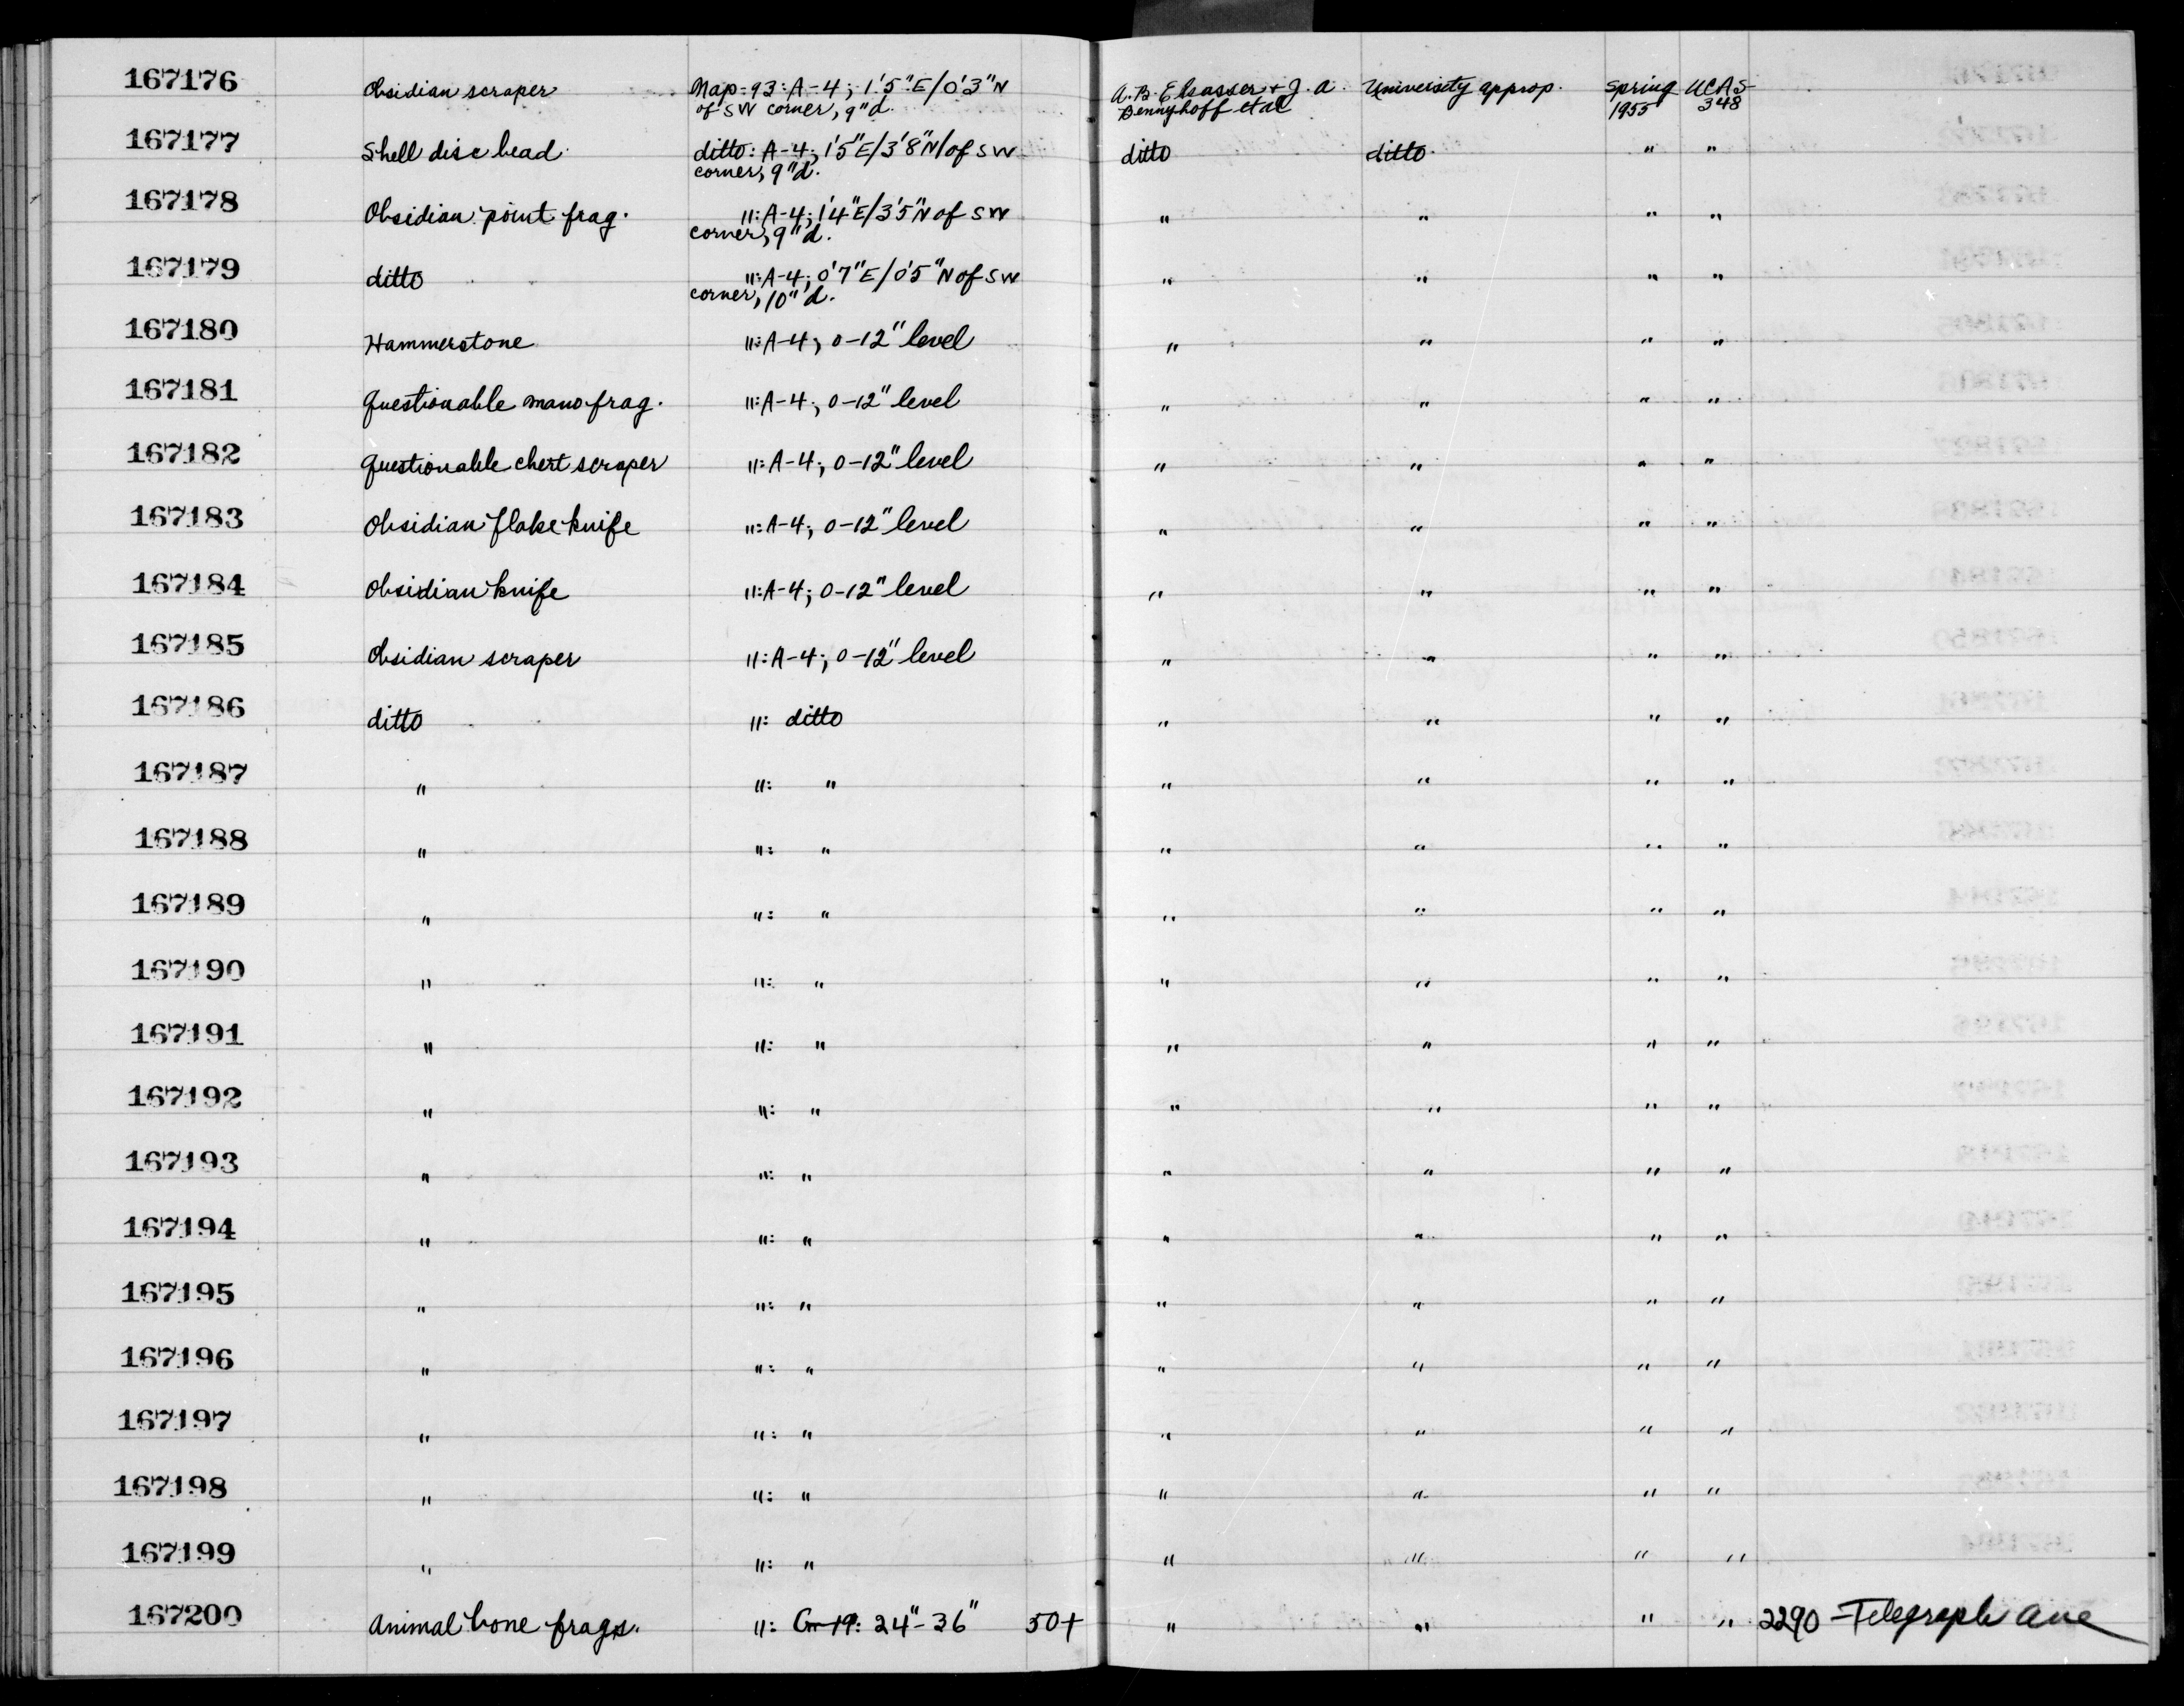 167176 Obsidian scraper Nap-93: A-4; 1'5"E/0'3"N A.B. Elsasser + J.A. University approp. Spring UCAS
of SW corner, 9"d. Bennyhoff et al 1955 348
167177 Shell disc bead ditto: A-4; 1'5"E/3'8"N/of SW ditto ditto " "
corner, 9"d.
167178 Obsidian point frag. ": A-4; 1'4"E/3'5"N of SW " " " "
corner, 9"d.
167179 ditto ": A-4; 0'7"E/0'5"N of SW " " " "
corner, 10"d.
167180 Hammerstone ": A-4; 0-12" level " " " "
167181 Questionable mano frag. ": A-4; 0-12" level " " " "
167182 Questionable chert scraper ": A-4; 0-12" level " " " "
167183 Obsidian flake knife ": A-4; 0-12" level " " " "
167184 Obsidian knife ": A-4; 0-12" level " " " "
167185 Obsidian scraper ": A-4; 0-12" level " " " "
167186 ditto ": ditto " " " "
167187 " ": " " " " "
167188 " ": " " " " "
167189 " ": " " " " "
167190 " ": " " " " "
167191 " ": " " " " "
167192 " ": " " " " "
167193 " ": " " " " "
167194 " ": " " " " "
167195 " ": " " " " "
167196 " ": " " " " "
167197 " ": " " " " "
167198 " ": " " " " "
167199 " ": " " " " "
167200 Animal bone frags. ": 24"-36" 50+ " " " " 2290 - Telegraph Ave